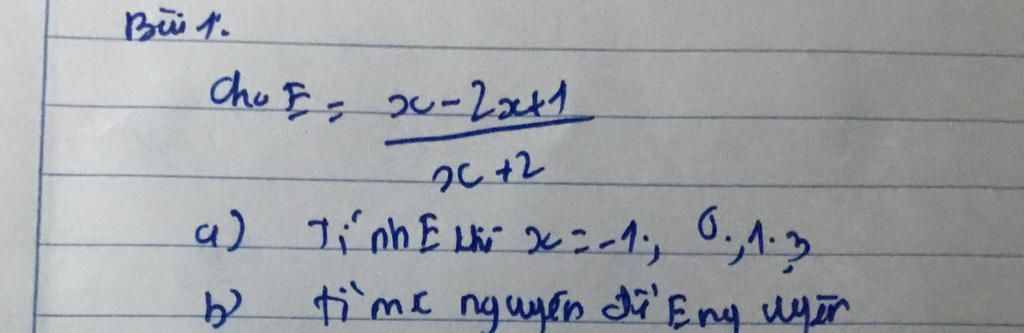 Bài 1.
Cho E = x-2x+1
x+2
a) Tính E khi x = -1; 0; 1; 3
b) tìm x nguyên để E nguyên